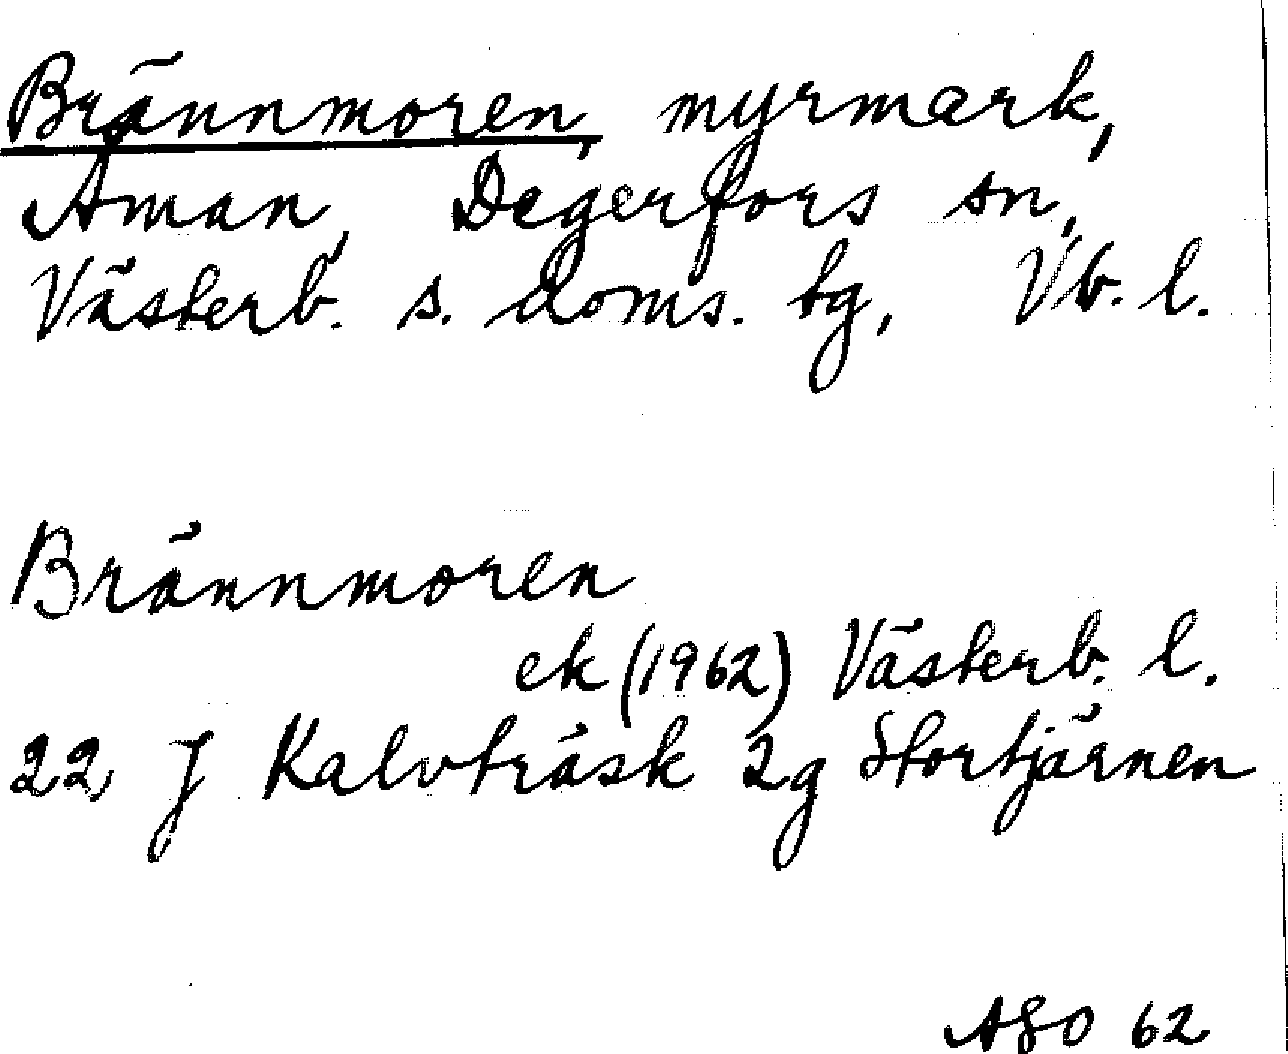 Brännmoren, myrmark,
Åman, Degerfors sn,
Västerb. s. doms. tg, Vb. l.
Brännmoren
ek (1962) Västerb. l.
22, J Kalvträsk 2g Stortjärnen
ASO 62